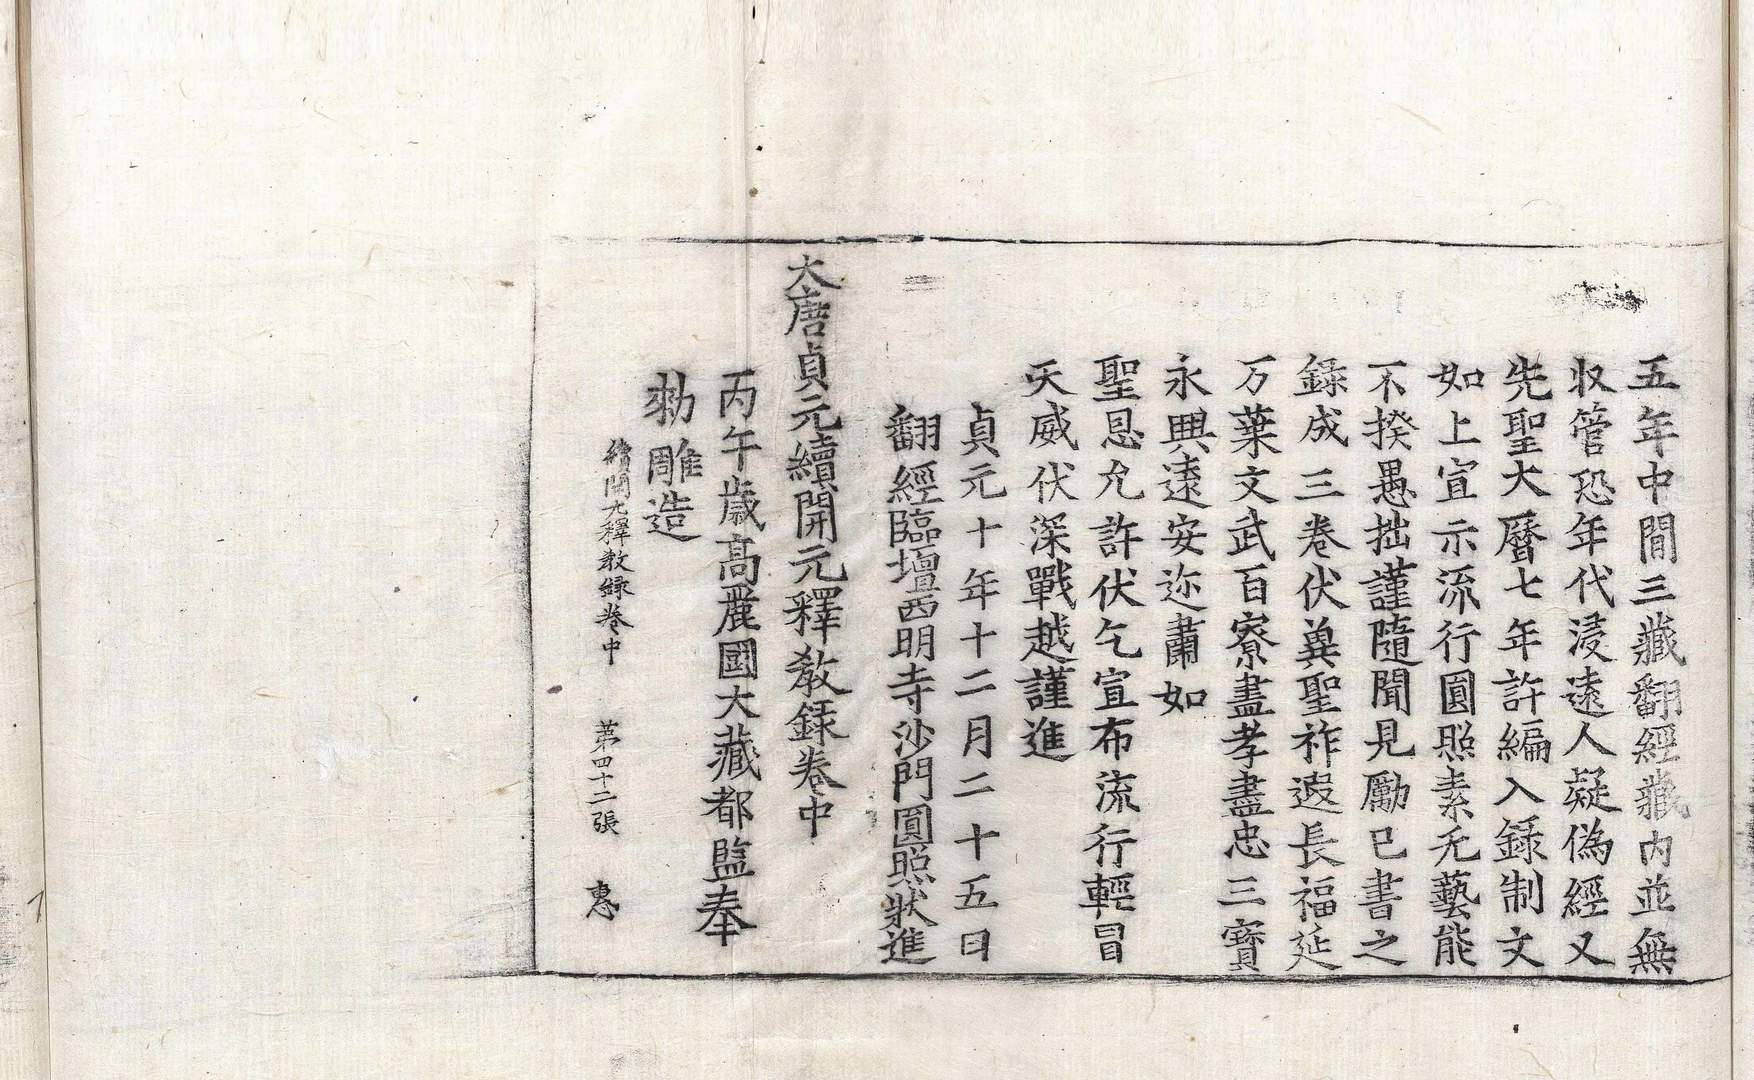 五年中間三藏翻經藏內並無
収管恐年代浸遠人疑偽經又
先聖大曆七年許編入錄制文
如上宣示流行圓照素无藝能
不揆愚拙謹隨聞見勵已書之
錄成三卷伏兾聖祚遐長福延
万葉文武百寮盡孝盡忠三寶
永興遠安迩肅如
聖恩允許伏乞宣布流行輕冒
天威伏深戰越謹進
貞元十年十二月二十五日
翻經臨壇西明寺沙門圓照狀進
大唐貞元續開元釋教錄卷中
丙午歲高麗國大藏都監奉
勑雕造
續開元釋教錄卷中 第四十二張 惠